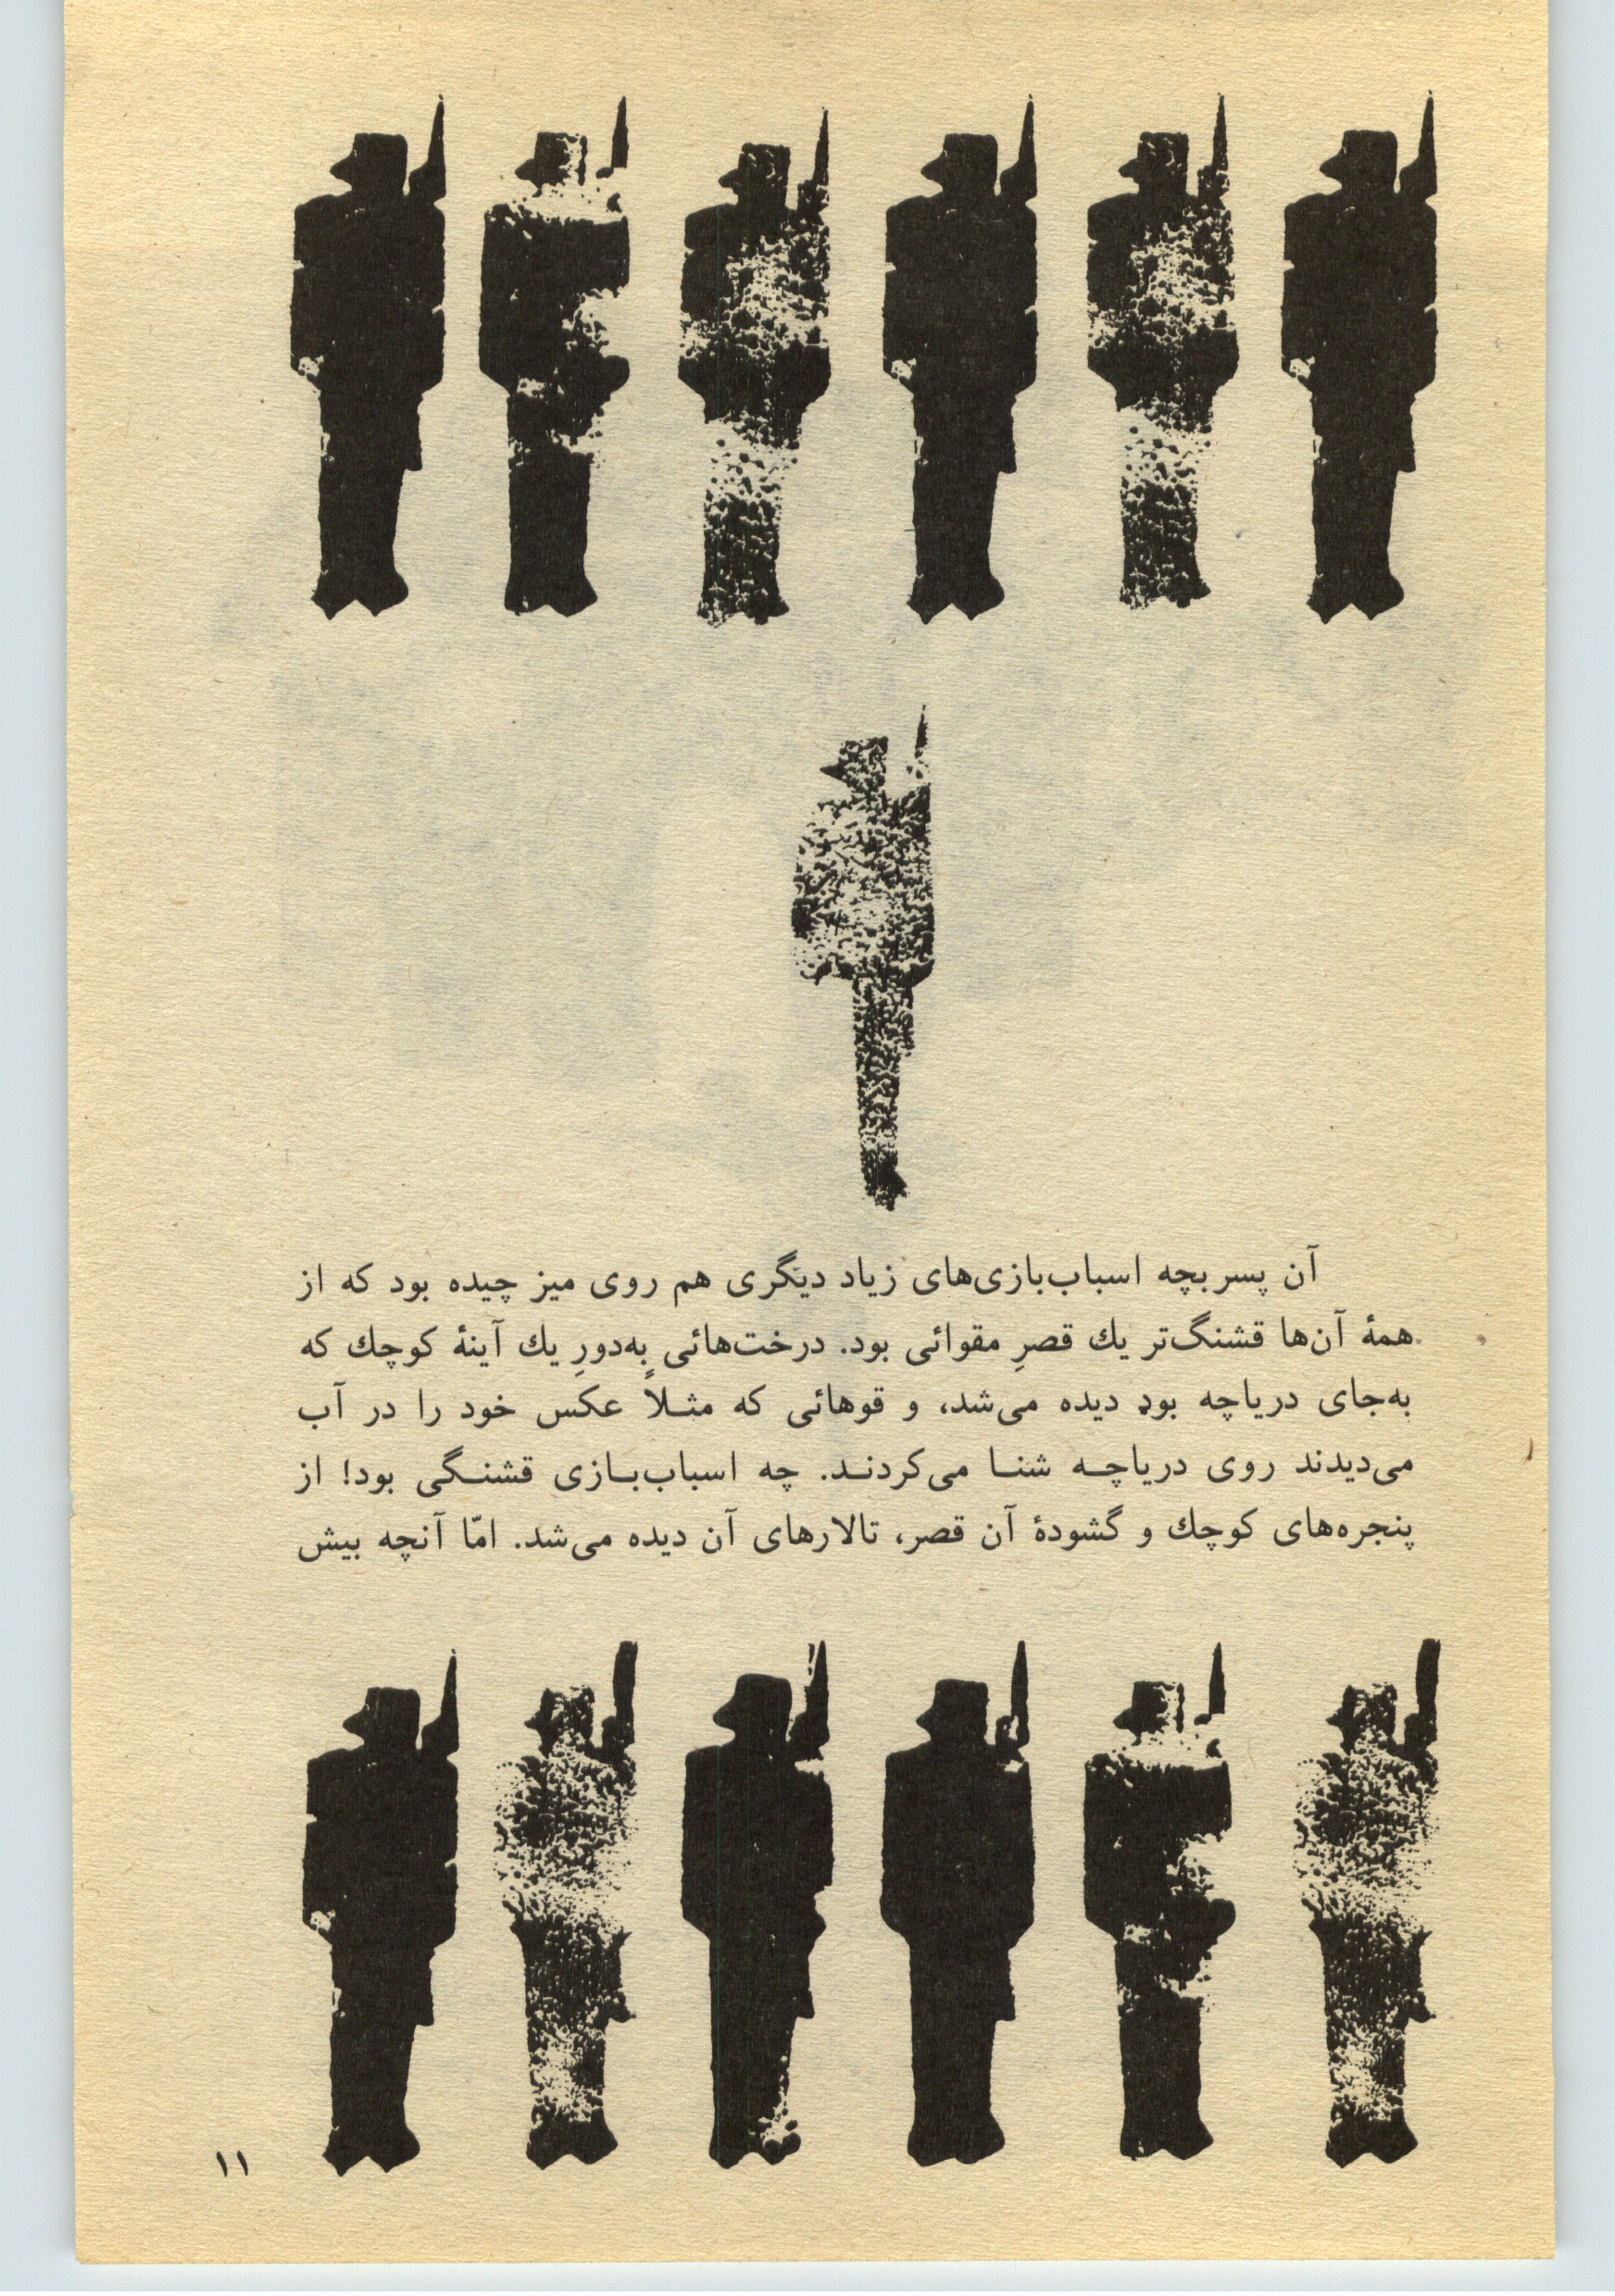 آن پسربچه اسباب‌بازی‌های زیاد دیگری هم روی میز چیده بود که از
همهٔ آن‌ها قشنگ‌تر یك قصرِ مقوائی بود. درخت‌هائی به‌دورِ یك آینهٔ کوچك که
به‌جای دریاچه بود دیده می‌شد، و قوهائی که مثـلاً عکس خود را در آب
می‌دیدند روی دریاچـه شنـا می‌کردنـد. چه اسباب‌بـازی قشنـگی بود! از
پنجره‌های کوچك و گشودهٔ آن قصر، تالارهای آن دیده می‌شد. امّا آنچه بیش
۱۱